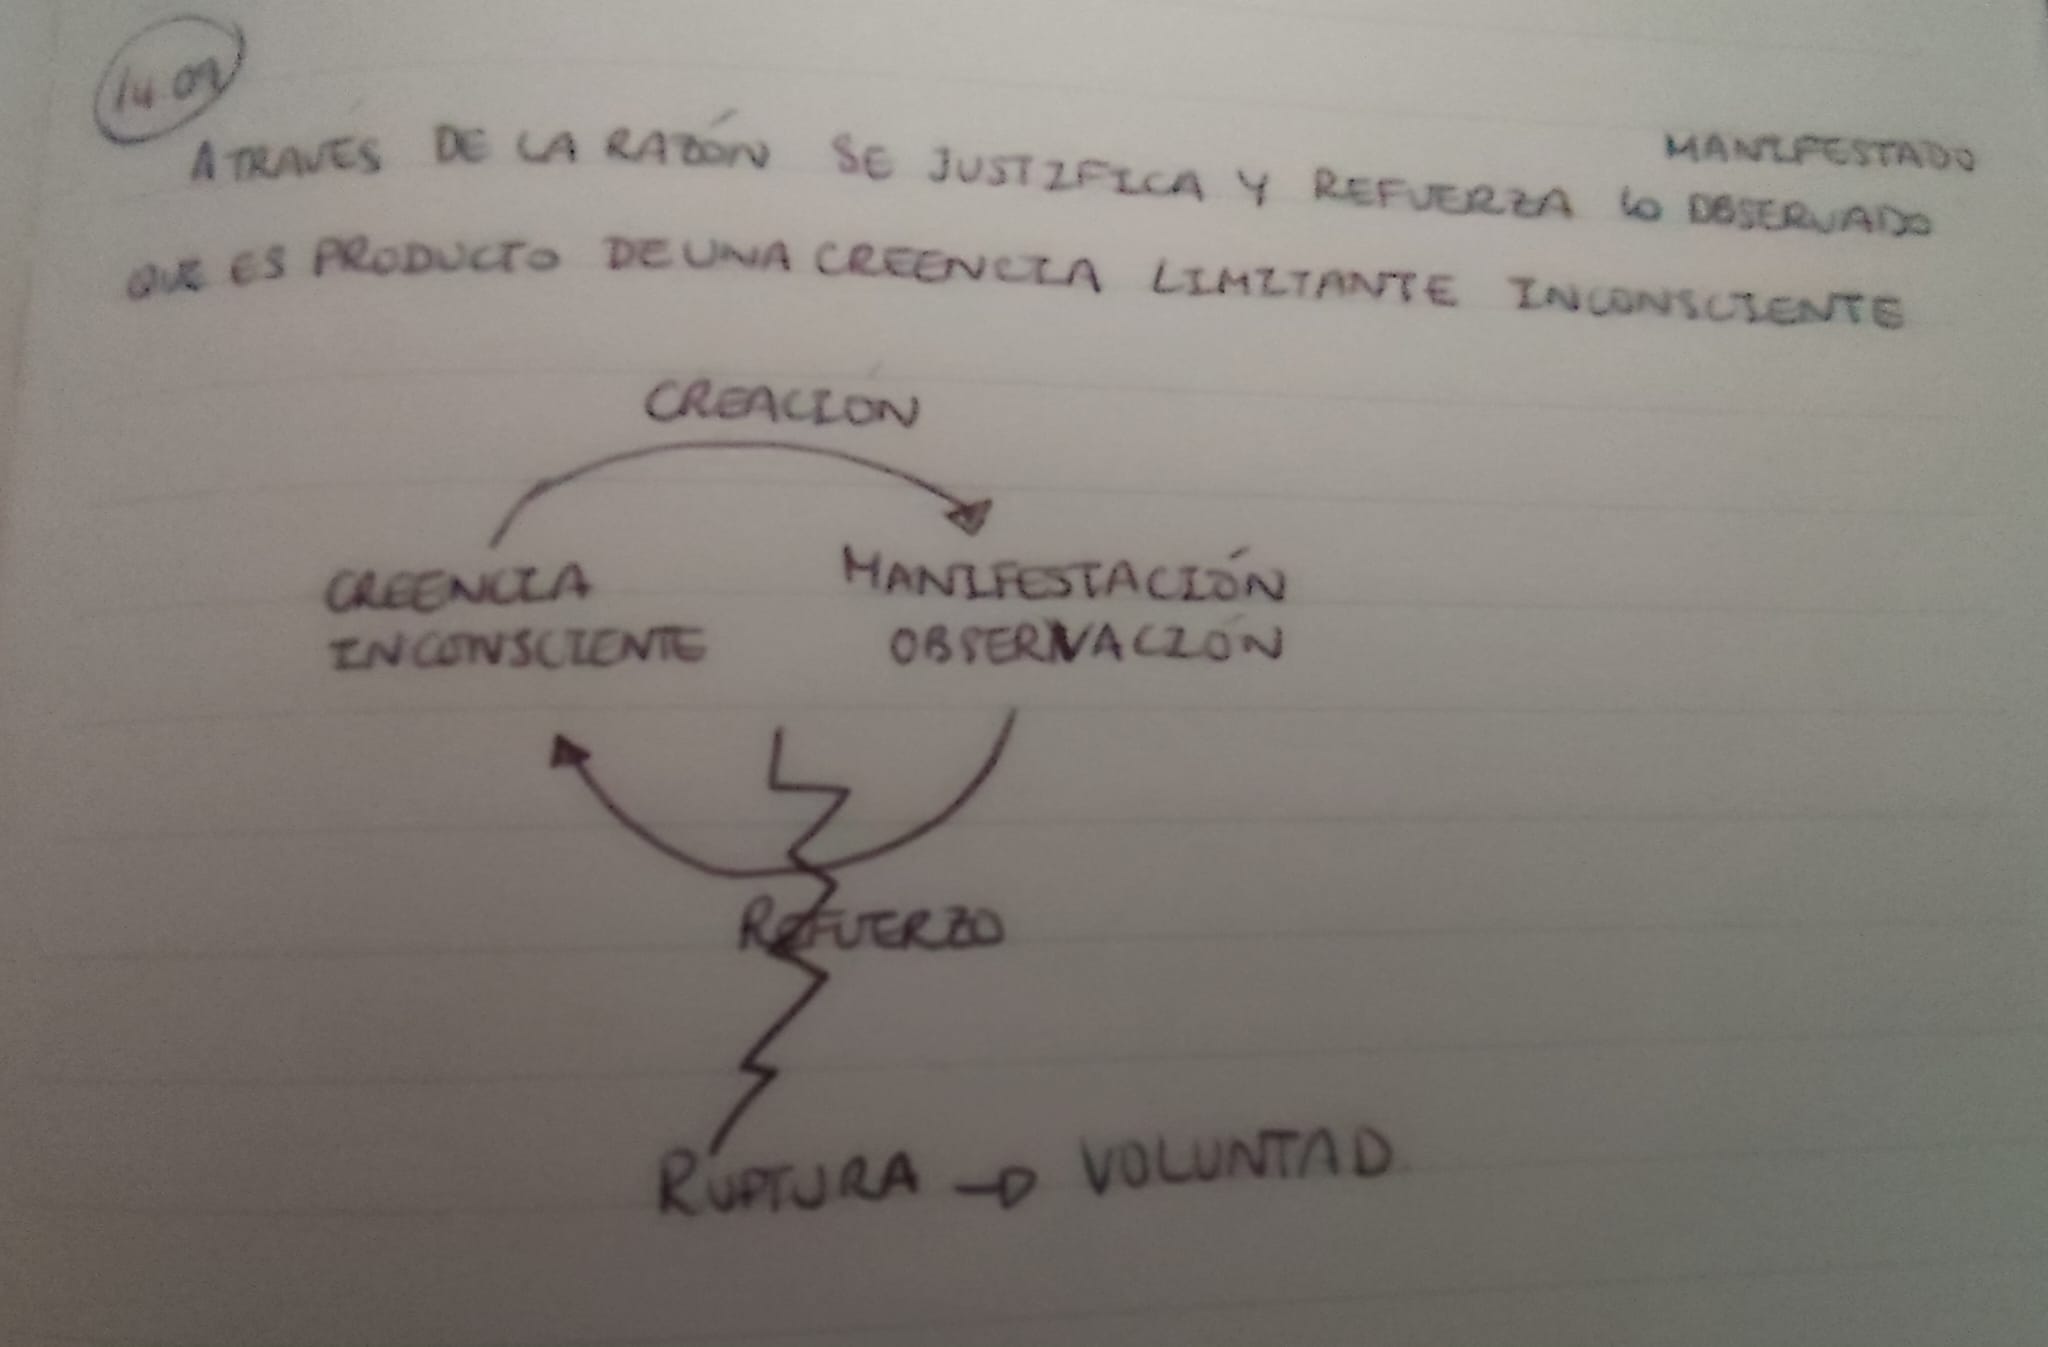 14.09
MANIFESTADO
A TRAVÉS DE LA RAZÓN SE JUSTIFICA Y REFUERZA LO OBSERVADO
QUE ES PRODUCTO DE UNA CREENCIA LIMITANTE INCONSCIENTE
CREACIÓN
CREENCIA
INCONSCIENTE
MANIFESTACIÓN
OBSERVACIÓN
REFUERZO
RUPTURA → VOLUNTAD